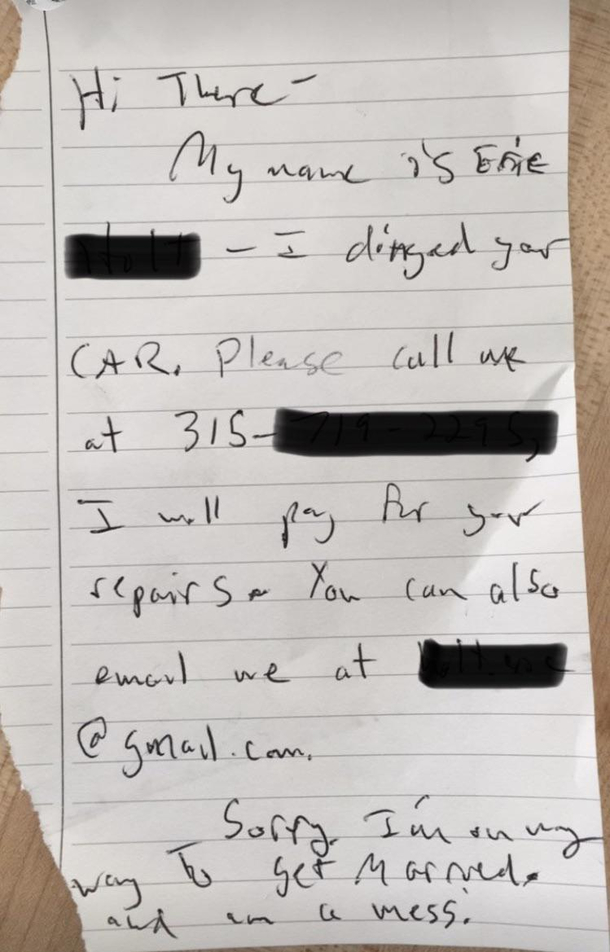 Hi There-
My name is Eric
- I dinged your
CAR. Please call me
at 315-
I will pay for your
repairs. You can also
email me at
@gmail.com.
Sorry. I'm on my
way to get Married.
and am a mess.